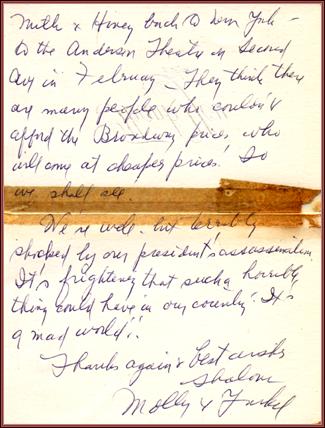 Milk & Honey back to New York –
to the Anderson Theatre on Second
Ave in February – They think there
are many people who couldn't
afford the Broadway prices who
will come at cheaper prices. So
we shall see.
We're well – but terribly
shocked by our president's assassination.
It's frightening that such a horrible
thing could have in our country. It's
a mad world!
Thanks again & best wishes
Shalom
Molly &